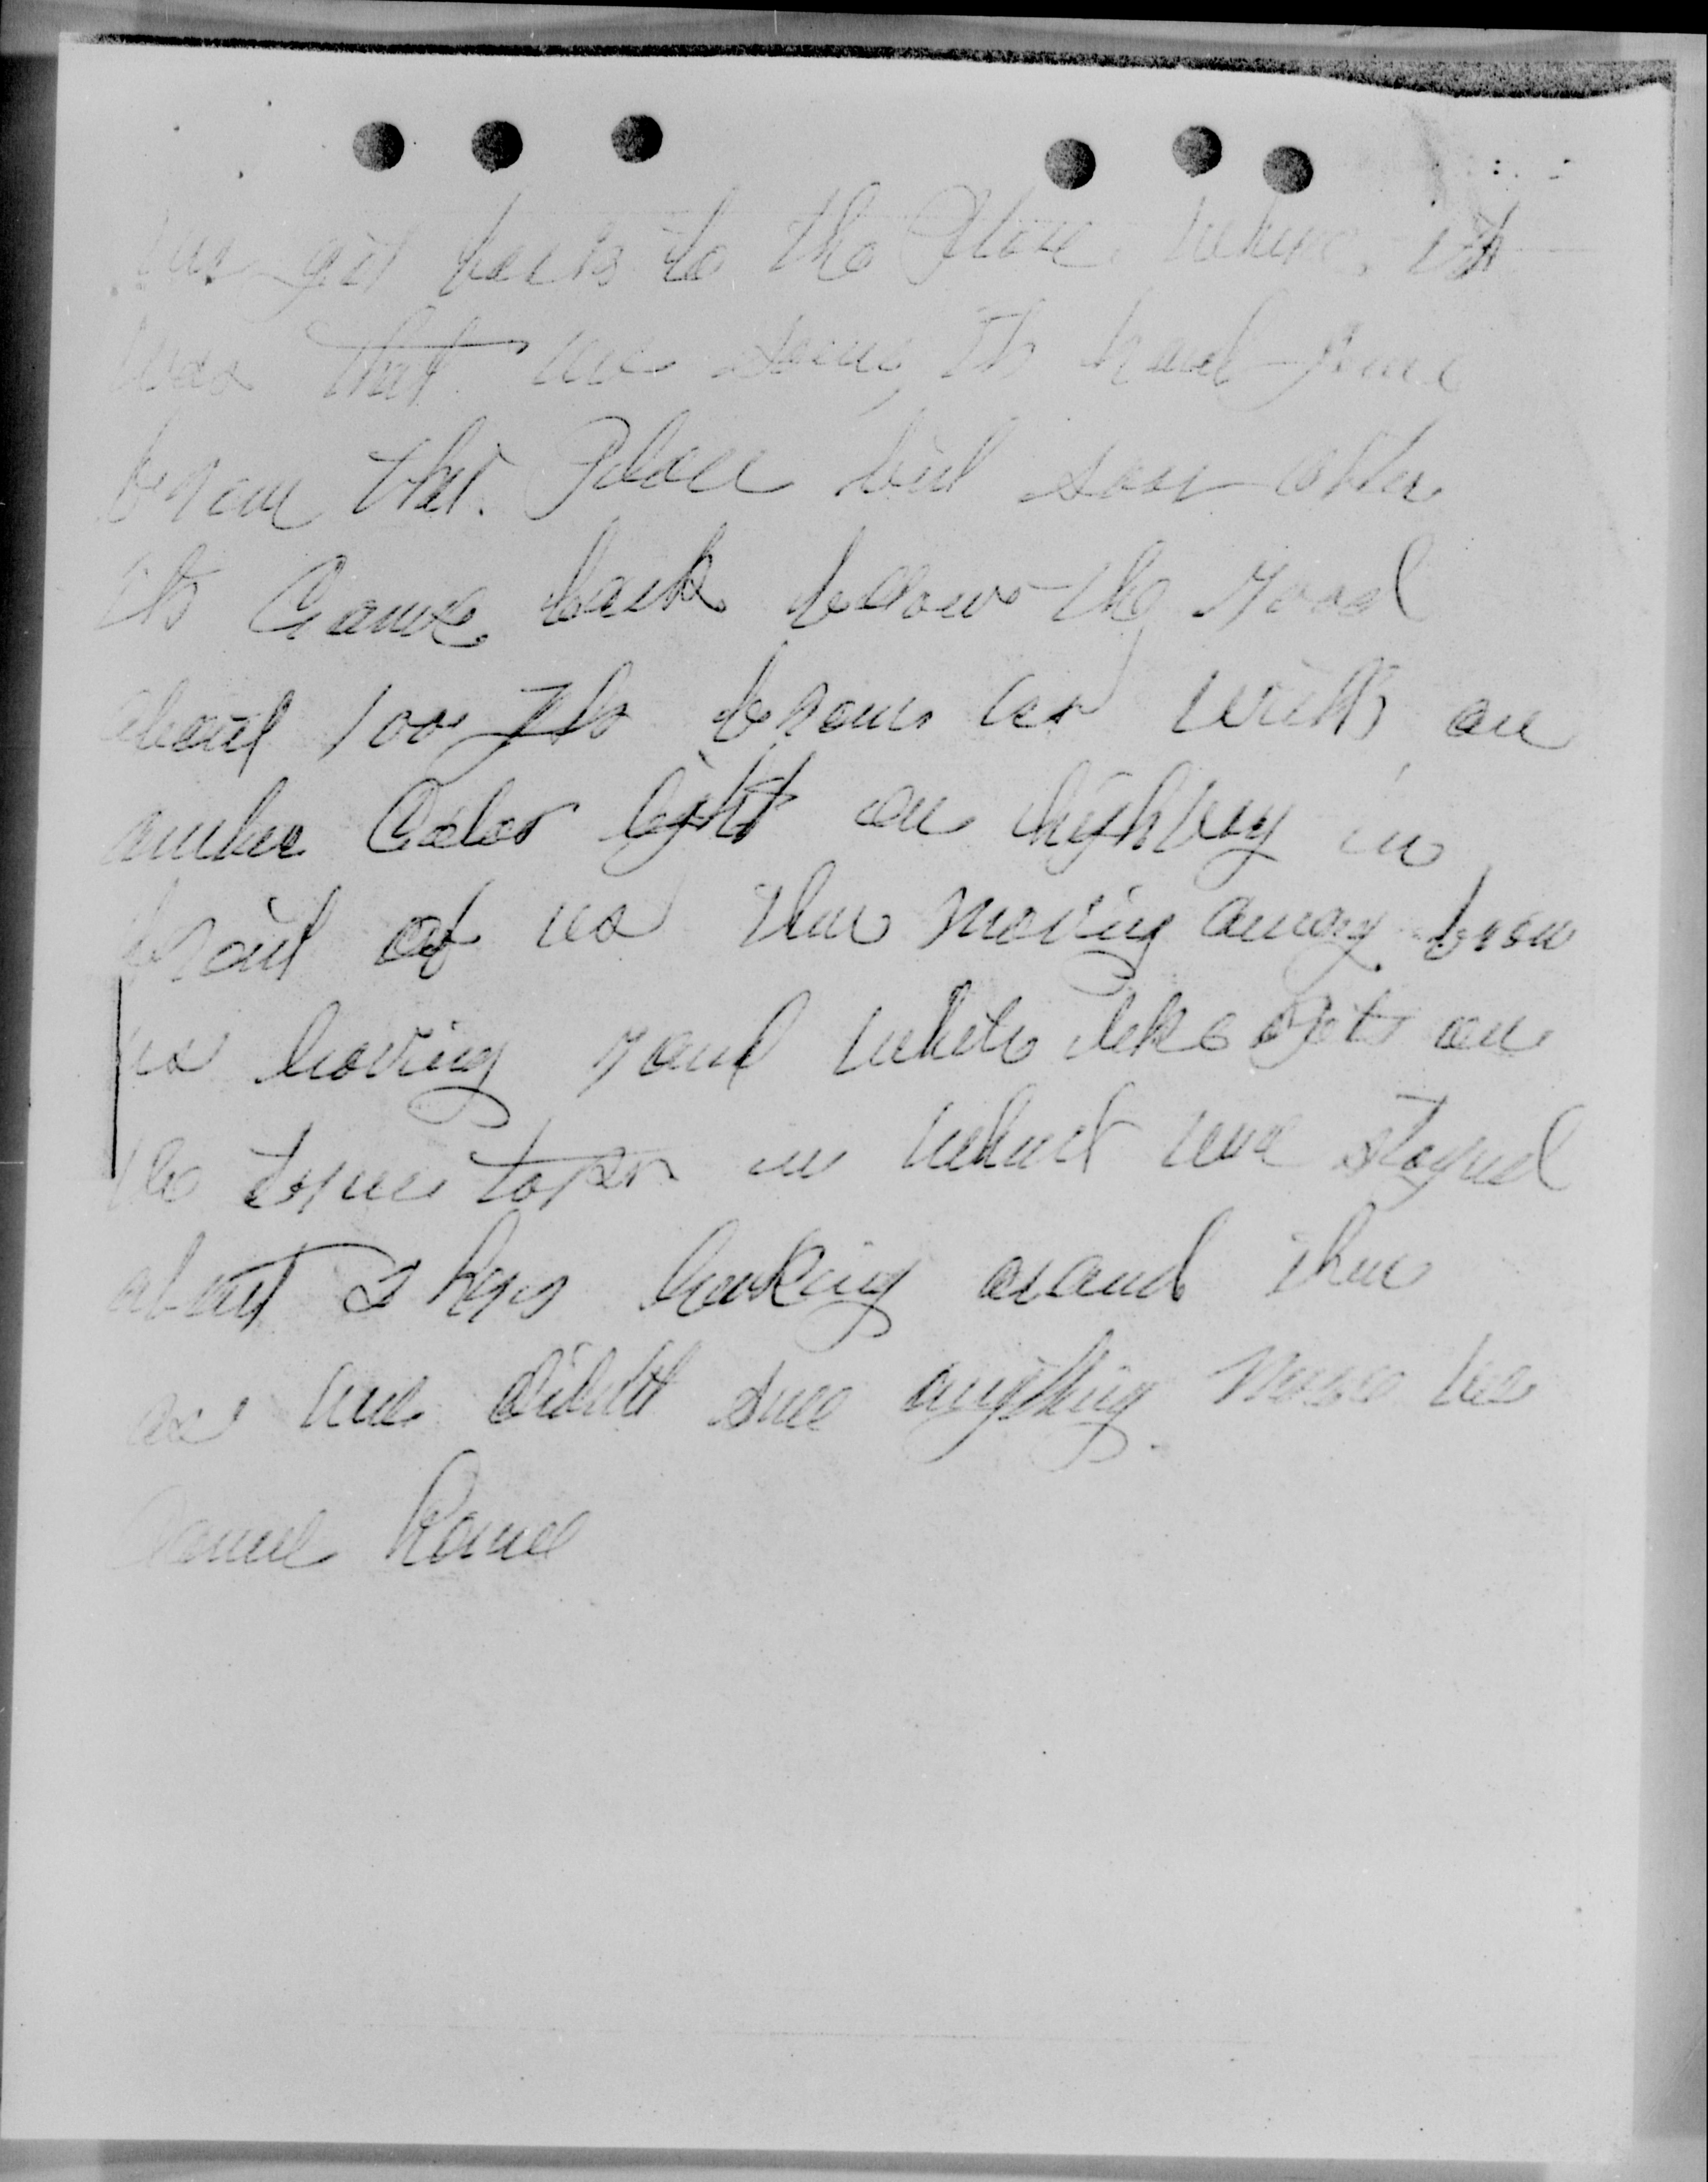 we got back to the Place where it
was that we seen it had gone
from that Place but soon after
it Came back follow the road
about 100 ft from us with an
amber Color light on highway in
front of us then moving away from
us having round white like on
the in which we stayed
about 2 hrs looking around then
as we didnt see anything more we
Came Home